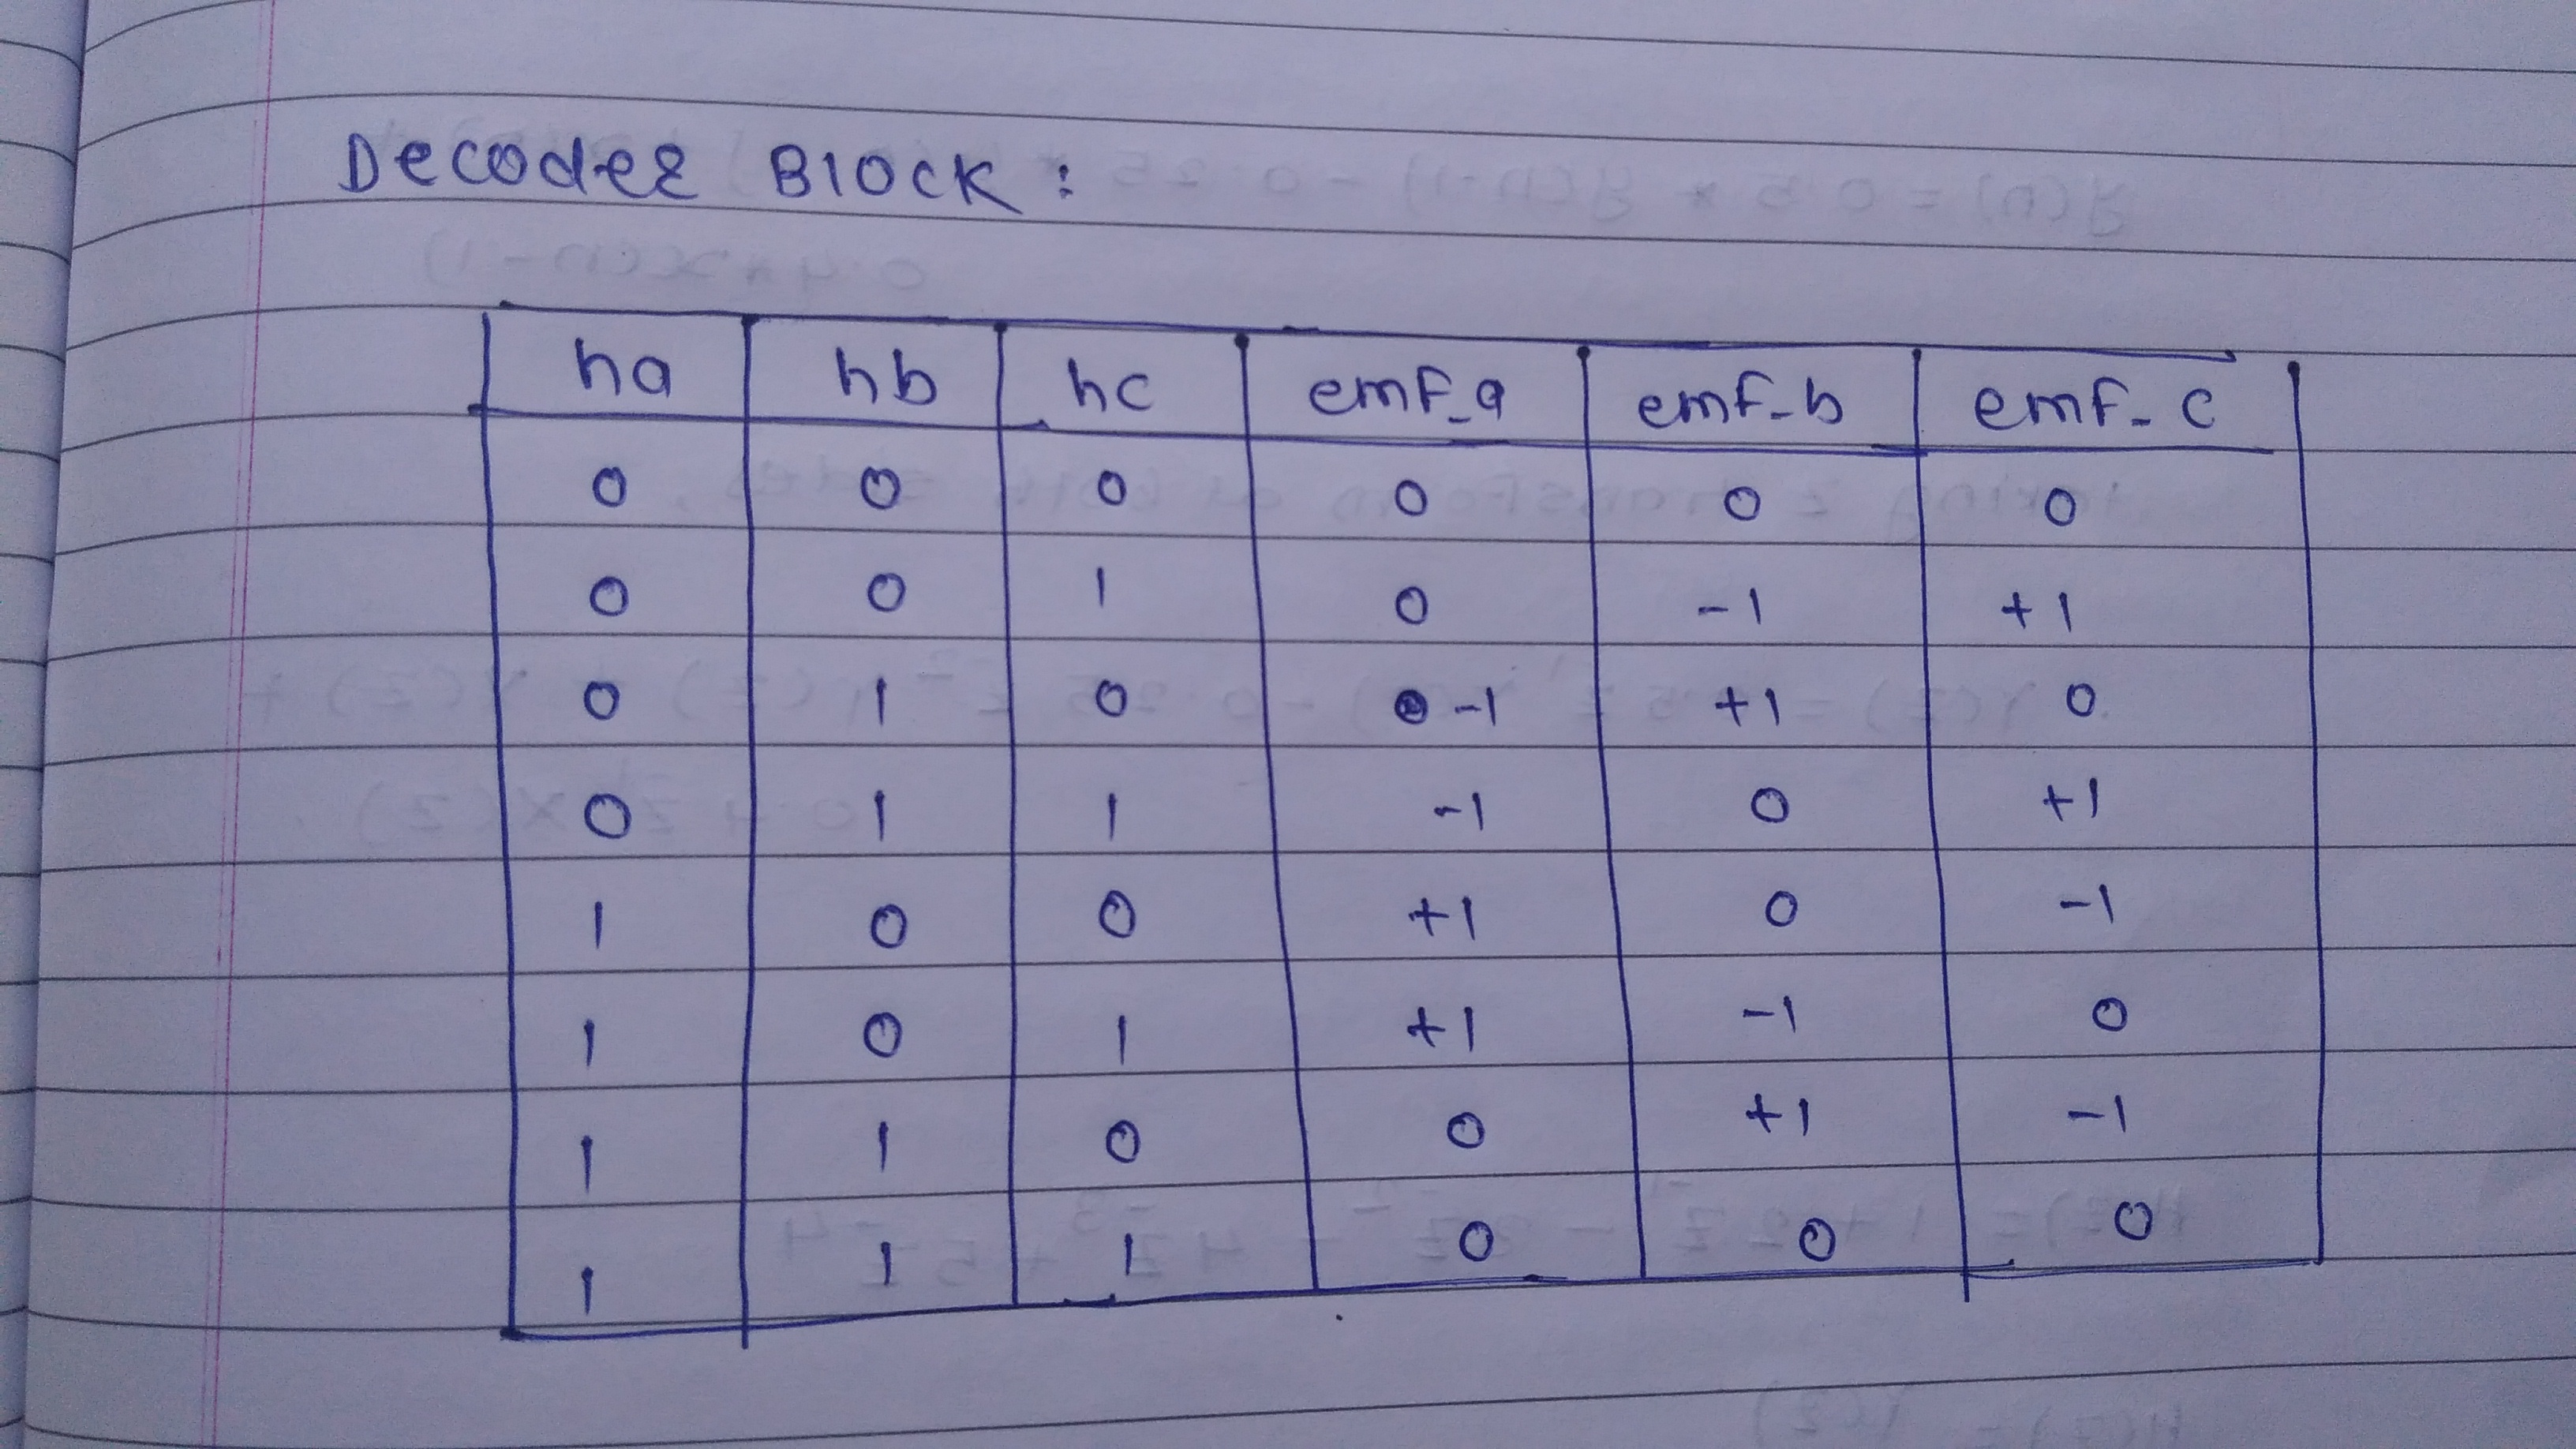 Decoder Block :
ha hb hc emf_a emf_b emf_c
0 0 0 0 0 0
0 0 1 0 -1 +1
0 1 0 -1 +1 0
0 1 1 -1 0 +1
1 0 0 +1 0 -1
1 0 1 +1 -1 0
1 1 0 0 +1 -1
1 1 1 0 0 0